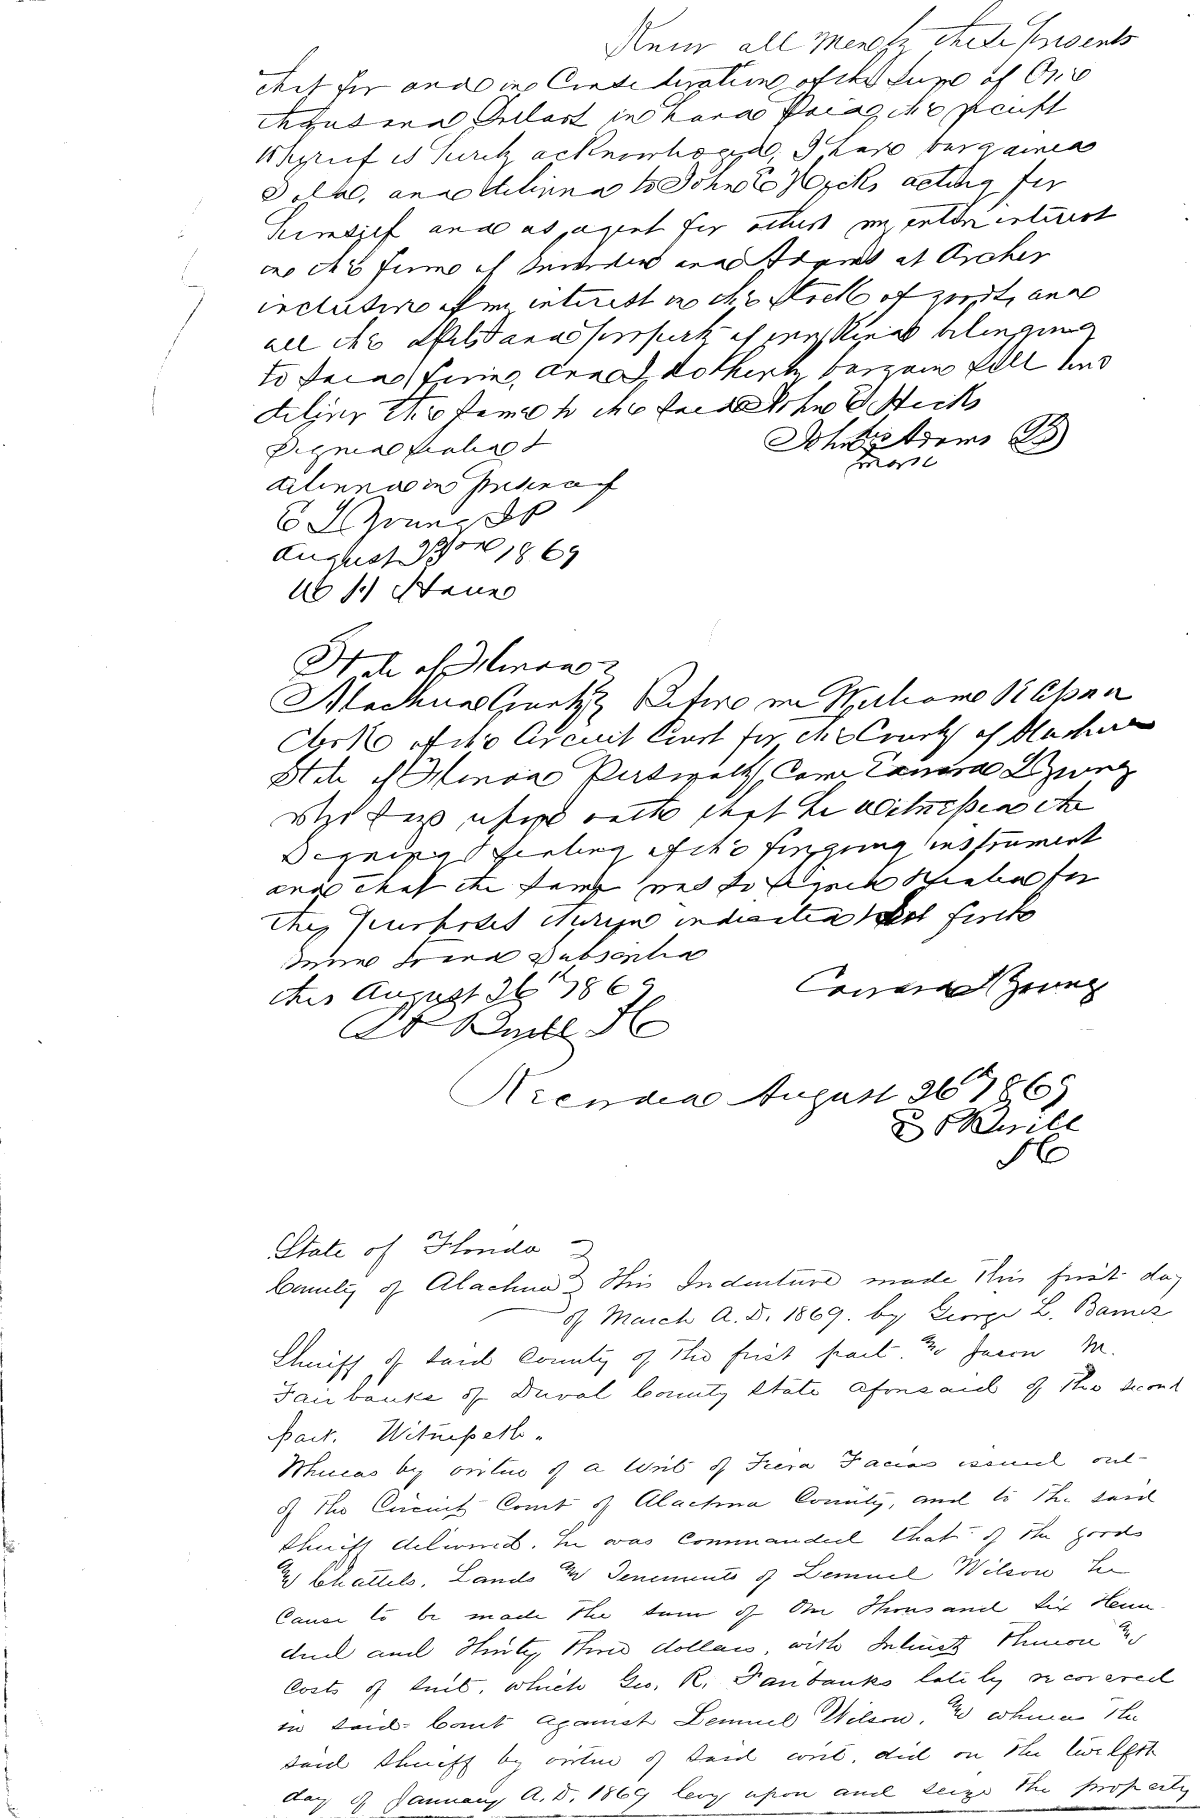 Know all Men by these Presents
that for and in Consideration of the Sum of One
thousand Dollars in hand Paid, the receipt
Whereof is hereby acknowledged, I have bargained
Sold, and delivered to John E Hicks acting for
himself and as agent for others my entire interest
in the firm of and Adams at Archer
inclusive of my interest in the Stock of goods, and
all the and property of every Kind belonging
to Said firm, and I do hereby bargain Sell and
deliver the Same to the Said John E Hicks
Signed Sealed & John his Adams
delivered in presence of mark
C L Young J P
August 23rd 1869
State of Florida
Alachua County Before me William K
Clerk of the Circuit Court for the County of Alachua
State of Florida Personally Came Conrad L Young
Who Says upon oath that he witnessed the
Signing & Sealing of the foregoing instrument
and that the Same was So Signed & Sealed for
the purposes therein indicated set forth
Sworn to and Subscribed
this August 26th 1869 Conrad L Young
Recorded August 26th 1869
State of Florida
County of Alachua This Indenture made This first day
of March A.D. 1869. by George L. Barnes
Sheriff of said County of The first part. and Jason M.
Fairbanks of Duval County State aforesaid of the second
part. Witnesseth.
Whereas by virtue of a Writ of Fiera Facias issued out
of The Circuit Court of Alachua County, and to The said
Sheriff delivered. he was commanded that of the goods
and Chattels. Lands and Tenements of Lemuel Wilson he
Cause to be made The sum of One Thousand Six Hun
dred and Thirty Three dollars, with Interest Thereon and
Costs of Suit. which Geo. R. Fairbanks lately recovered
in said Court against Lemuel Wilson. and whereas The
said Sheriff by virtue of said writ. did on The twelfth
day of January A.D. 1869 levy upon and seize The property